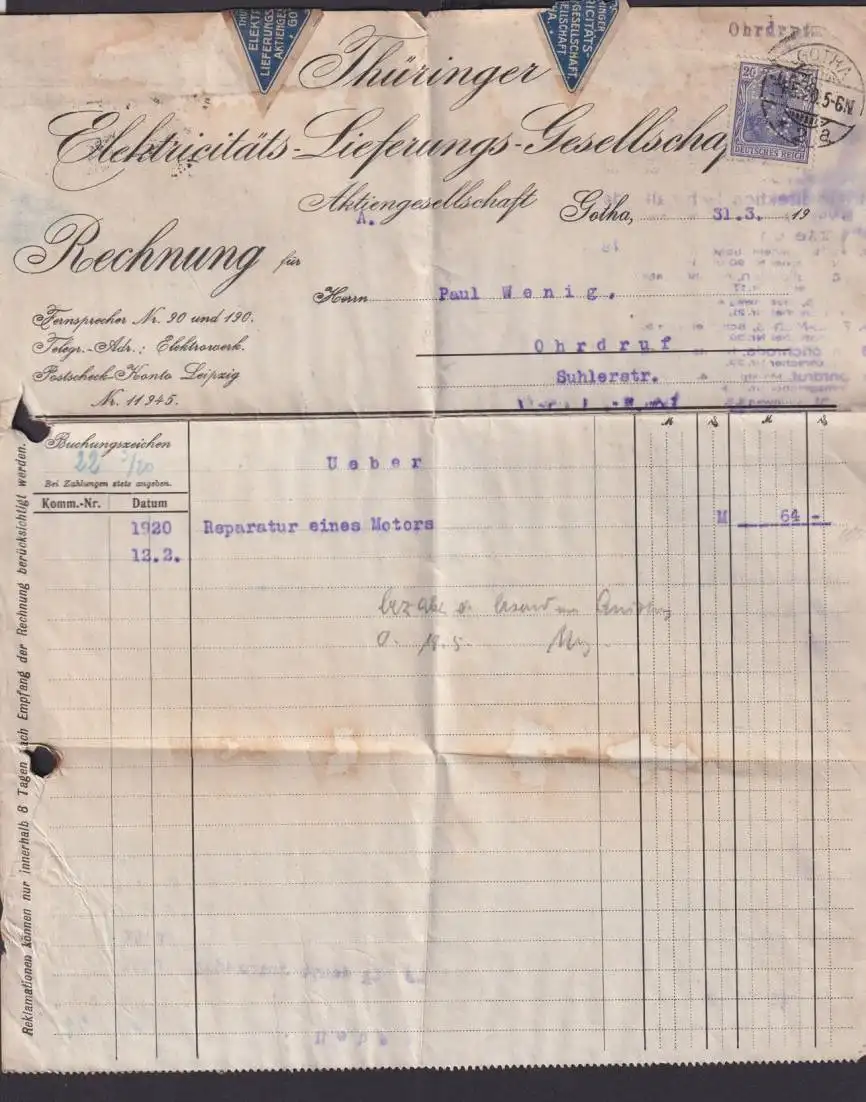 THÜ
ELEKTR
LIEFERUNGS
AKTIENGES
GO
RINGER
RICITÄTS
GESELLSCHAFT
Ohrdruf
GOTHA
5-6N
a
20
DEUTSCHES REICH
Thüringer
Elektricitäts-Lieferungs-Gesellscha
Aktiengesellschaft
A.
Gotha, 31.3. 19
Rechnung für
Herrn Paul Wenig.
Fernsprecher Nr. 90 und 190.
Telegr.-Adr.: Elektrowerk.
Postscheck-Konto Leipzig
Nr. 11945.
Ohrdruf
Suhlerstr.
Buchungszeichen
22 3/20
Bei Zahlungen stets angeben.
Komm.-Nr. Datum
M ₰ M ₰
Ueber
1920 Reparatur eines Motors M 64 -
12.2.
18.5.
Reklamationen können nur innerhalb 8 Tagen nach Empfang der Rechnung berücksichtigt werden.